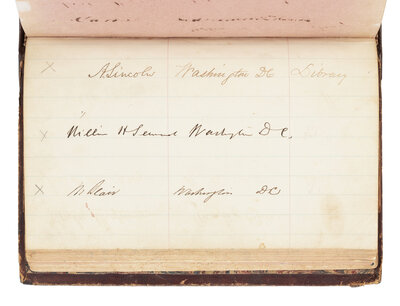 x A Lincoln Washington DC Library
x William H Seward Washington D C.
x Blair Washington DC